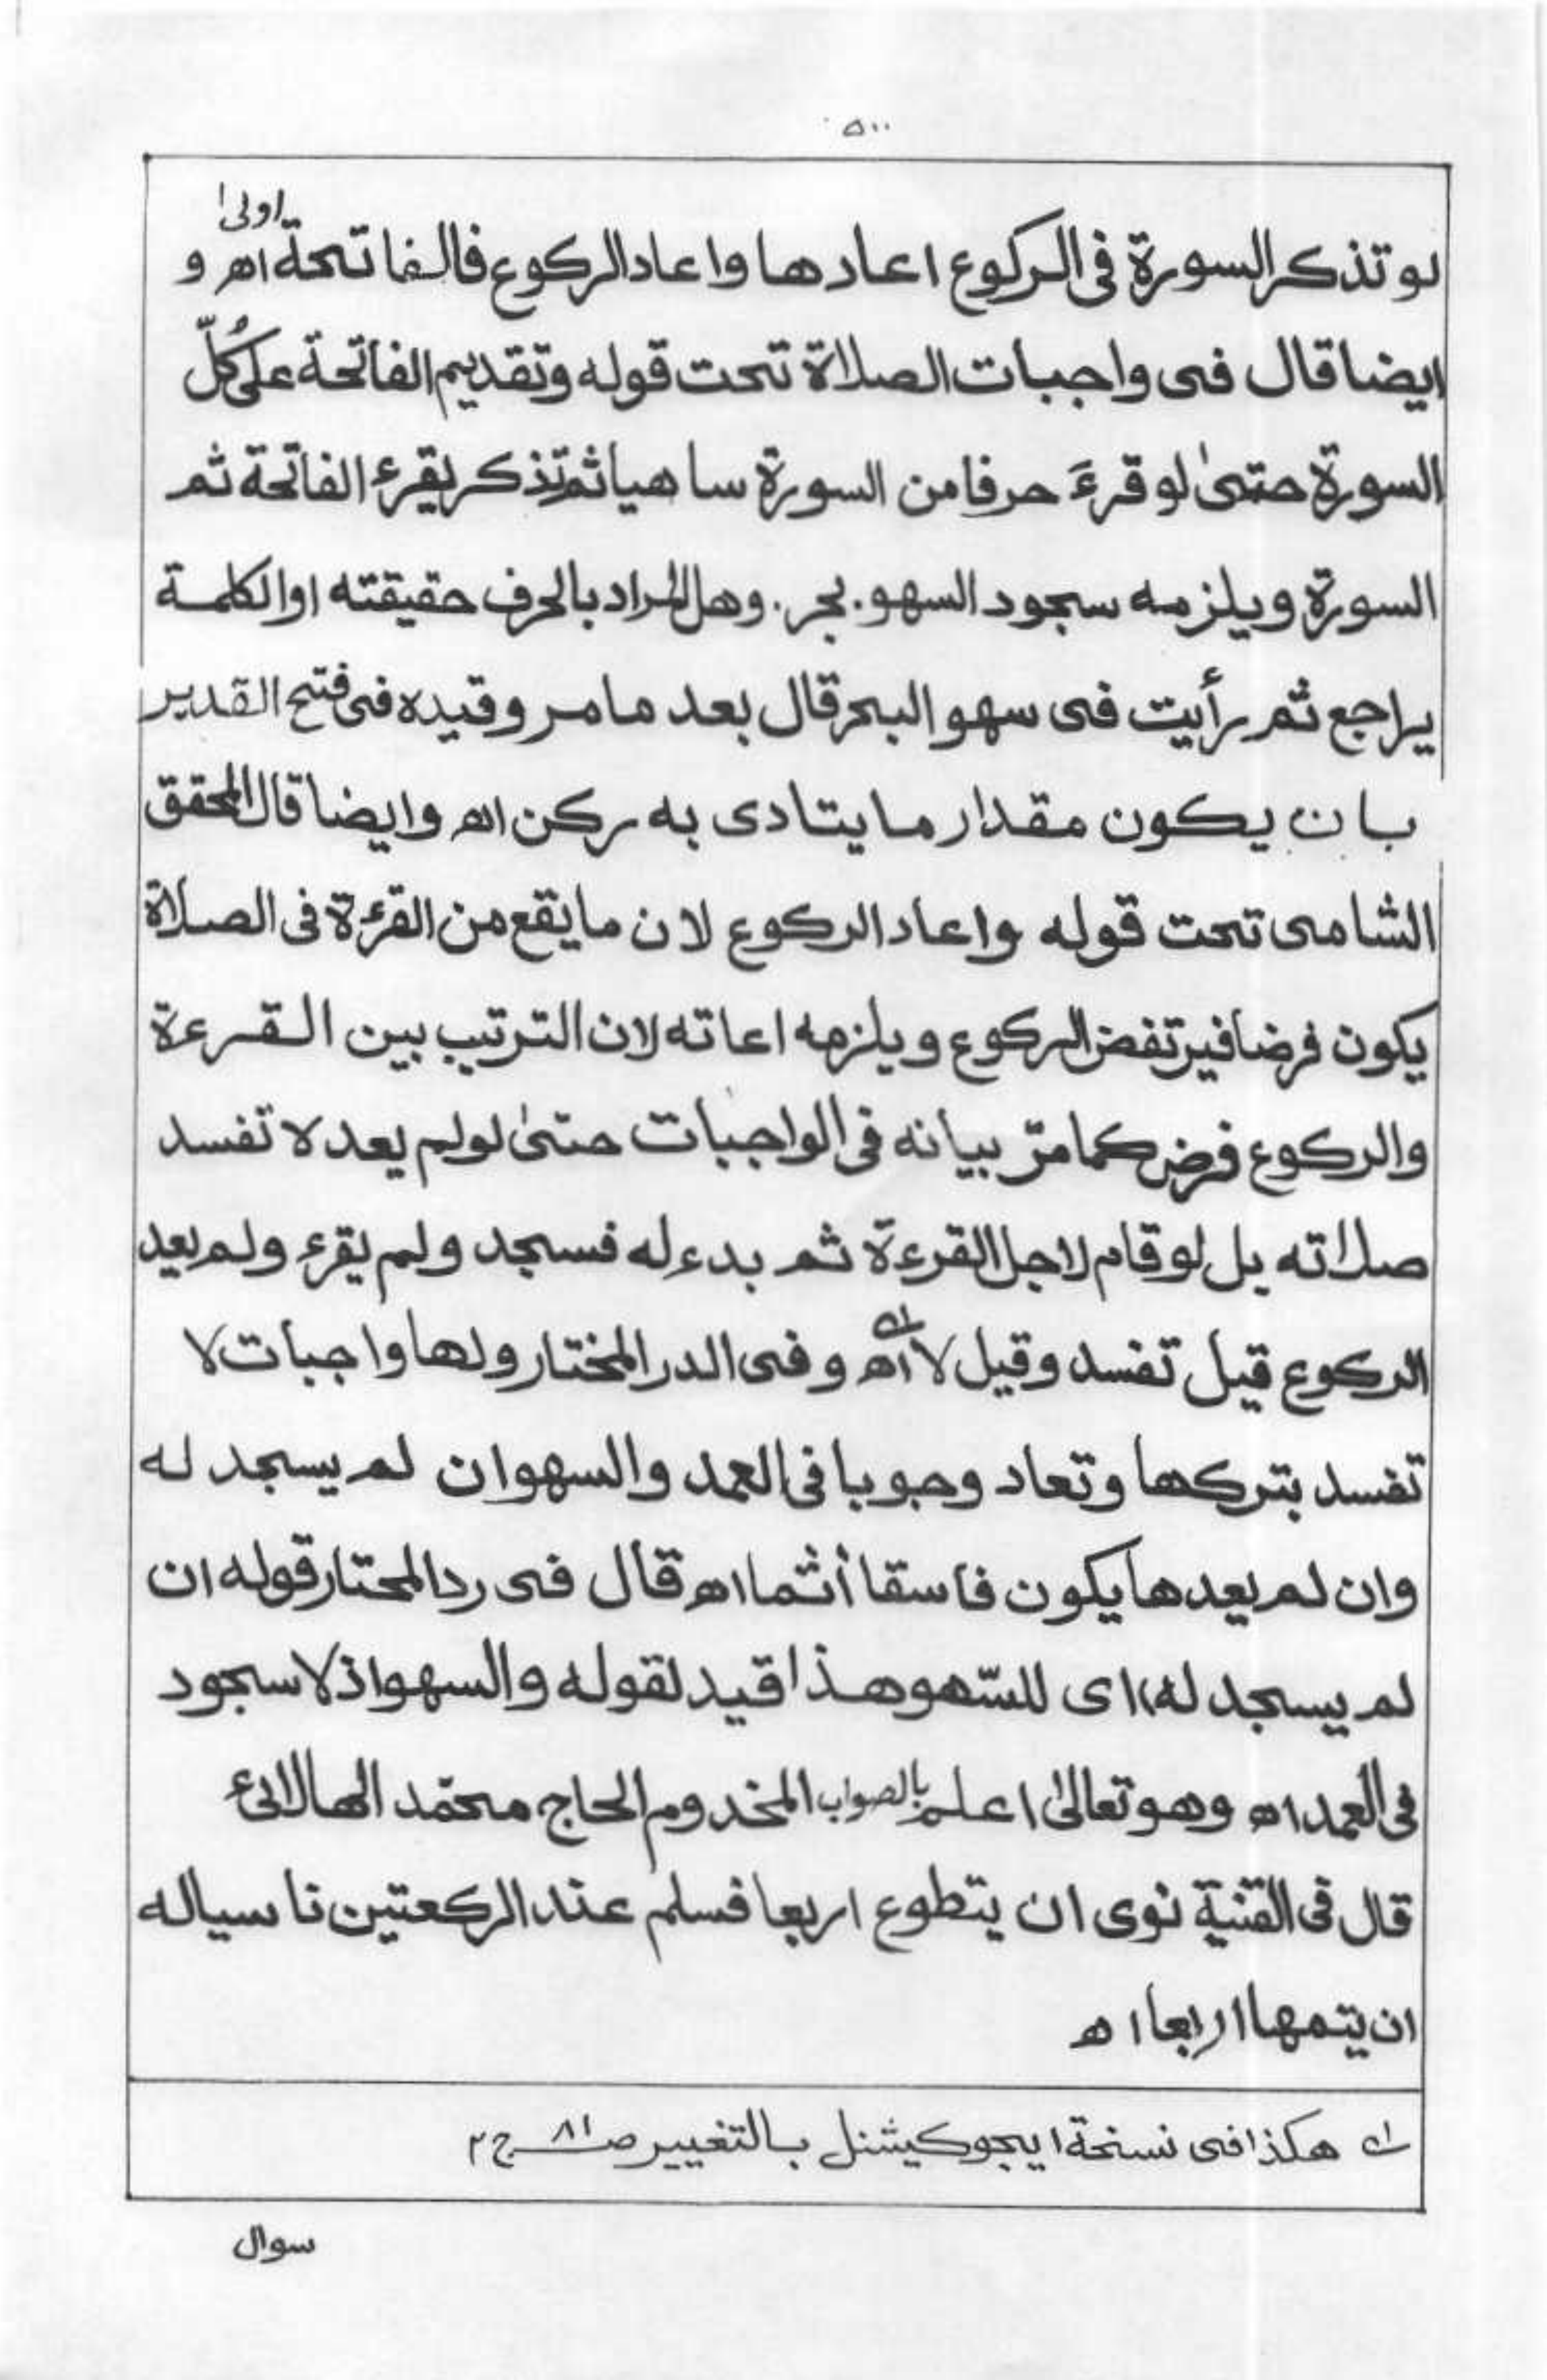 ٥٠٠
لو تذكر السورة فى الركوع اعادها واعاد الركوع فالفاتحة اولى اھ و
ايضا قال فى واجبات الصلاة تحت قوله وتقديم الفاتحة على كُلّ
السورة حتىٰ لو قرءَ حرفا من السورة ساهيا ثم تذكر يقرء الفاتحة ثم
السورة ويلزمه سجود السهو. بحر. وهل المراد بالحرف حقيقته او الكلمة
يراجع ثم رأيت فى سهو البحر قال بعد ما مر وقيده فى فتح القدير
بان يكون مقدار ما يتادى به ركن اھ وايضا قال المحقق
الشامى تحت قوله واعاد الركوع لان ما يقع من القرءة فى الصلاة
يكون فرضا فيرتفض الركوع ويلزمه اعاته لان الترتيب بين القرءة
والركوع فرض كما مرّ بيانه فى الواجبات حتىٰ لو لم يعد لا تفسد
صلاته يل لو قام لاجل القرءة ثم بدء له فسجد ولم يقرء ولم يعيد
الركوع قيل تفسد وقيل لا اھ ؎۱ وفى الدر المختار ولها واجبات لا
تفسد بتركها وتعاد وجوبا فى العمد والسهو ان لم يسجد له
وان لم يعدها يكون فاسقا أثما اھ قال فى رد المحتار قوله ان
لم يسجد له) اى للسّهو هذا قيد لقوله والسهو اذ لا سجود
فى العمد اھ وهو تعالىٰ اعلم بالصواب المخدوم الحاج محمّد الهالائى
قال فى القنية نوى ان يتطوع اربعا فسلم عند الركعتين ناسيا له
ان يتمها اربعا اھ
؎۱ هكذا فى نسخة ايجوكيشنل بالتغيير ص ٨١ ج ٢
سوال